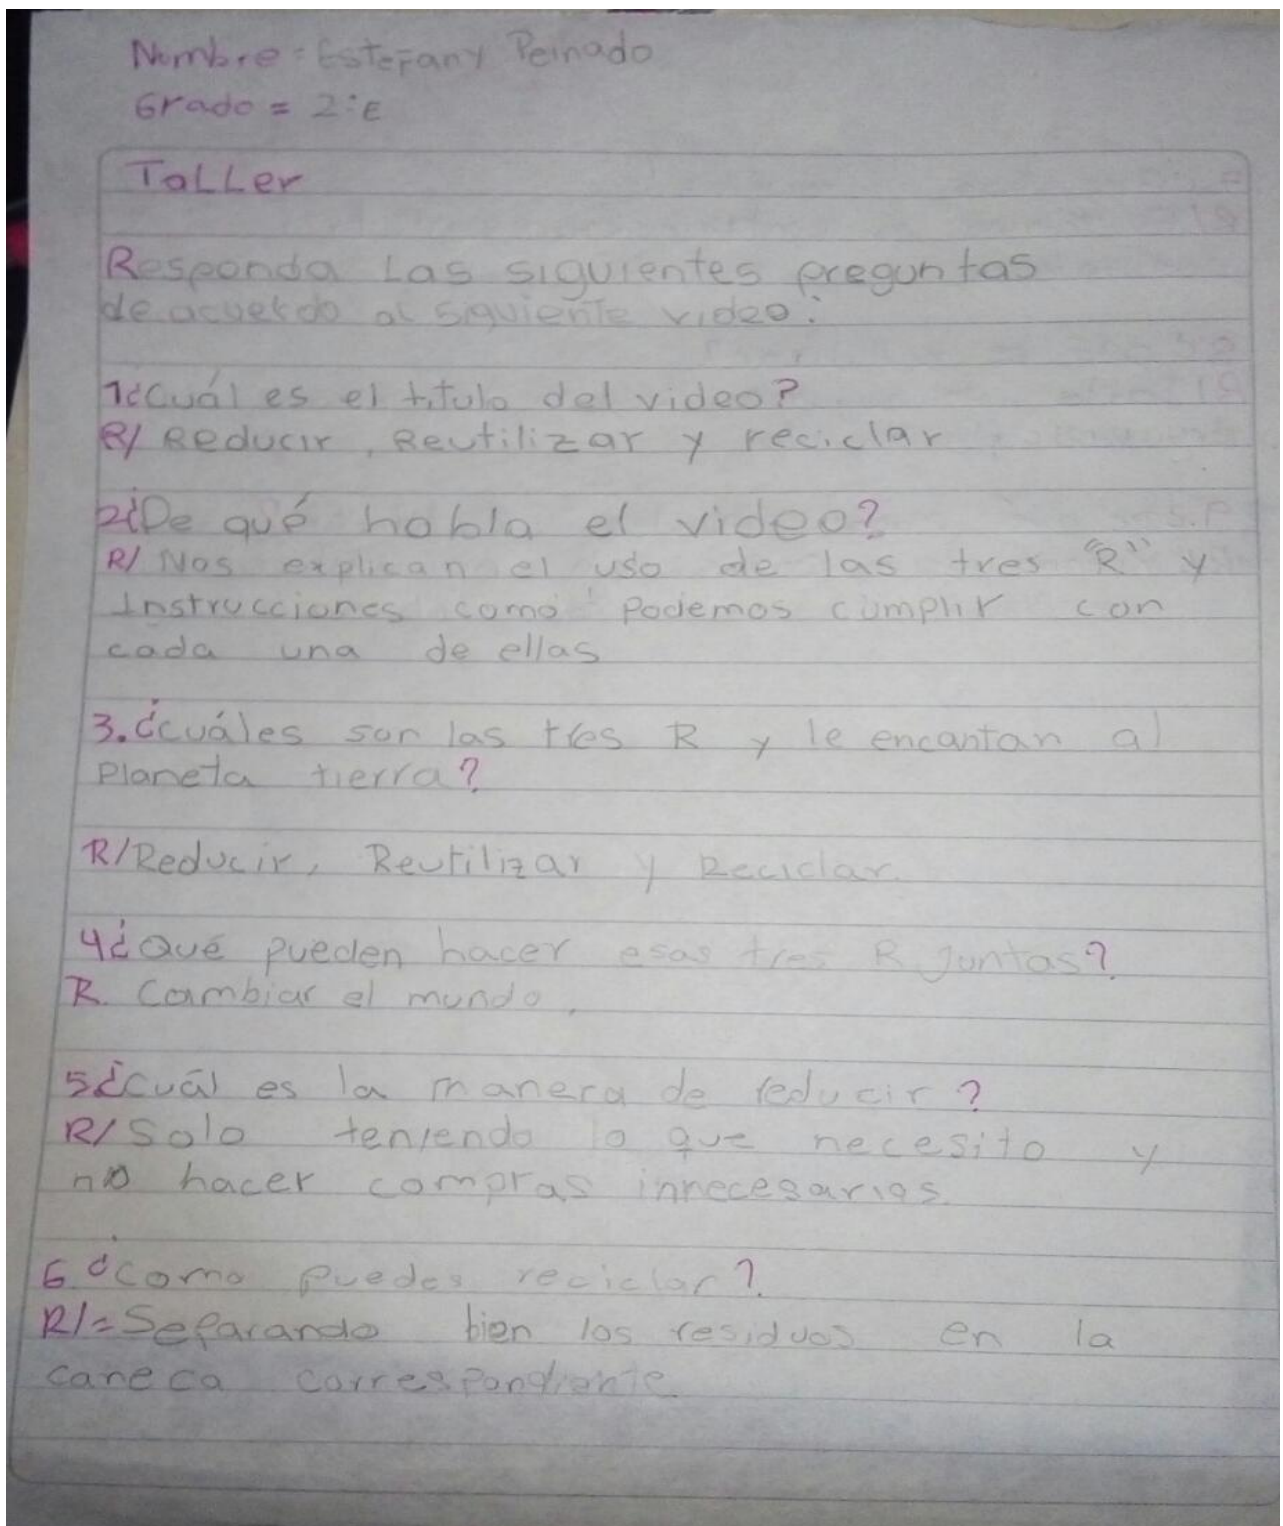 Nombre = Estefany Peinado
Grado = 2:E
Taller
Responda Las siguientes preguntas
de acuerdo al siguiente video:
1¿Cuál es el titulo del video?
R/ Reducir, Reutilizar y reciclar
2¿De qué habla el video?
R/ Nos explican el uso de las tres "R" y
Instrucciones como podemos cumplir con
cada una de ellas
3. ¿cuáles son las tres R y le encantan al
Planeta tierra?
R/Reducir, Reutilizar y Reciclar.
4¿Qué pueden hacer esas tres R Juntas?
R. Cambiar el mundo,
5¿cuál es la manera de reducir?
R/ Solo teniendo lo que necesito y
no hacer compras innecesarias.
6 ¿como puedes reciclar?
R/= Separando bien los residuos en la
caneca correspondiente